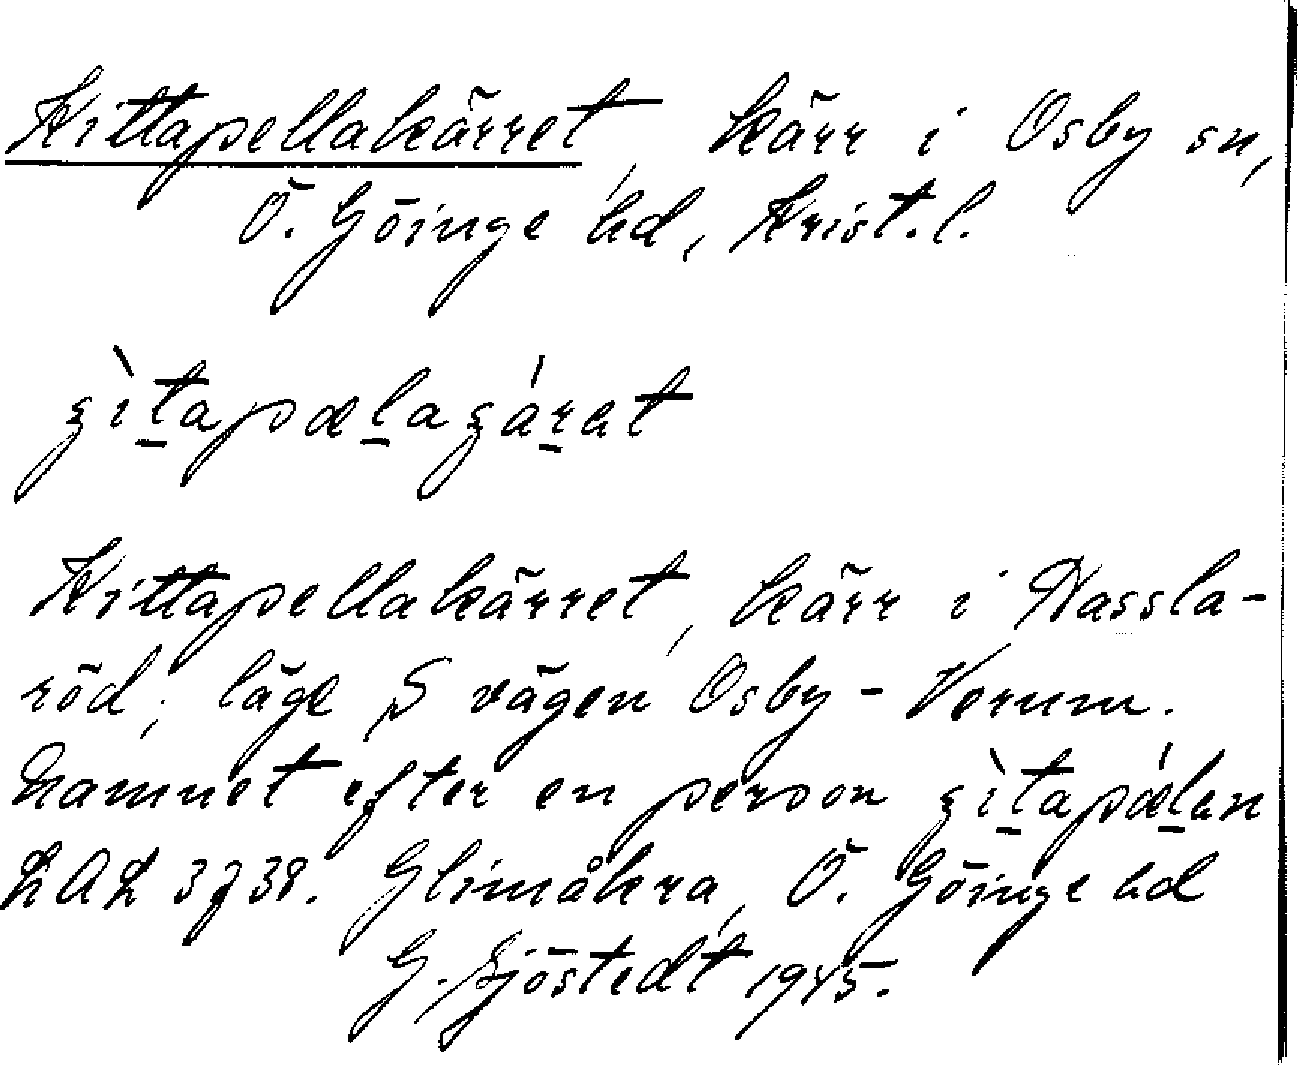 Kittapellakärret, kärr i Osby sn,
Ö. Göinge hd, Krist. l.
ʒìt̲apæl̲aʒár̲et
Kittapellakärret, kärr i Hassla-
röd; läge S vägen Osby - Verum.
Namnet efter en person ʒìt̲apǽl̲en
LAL 3738. Glimåkra, Ö. Göinge hd
G. Sjöstedt 1945.